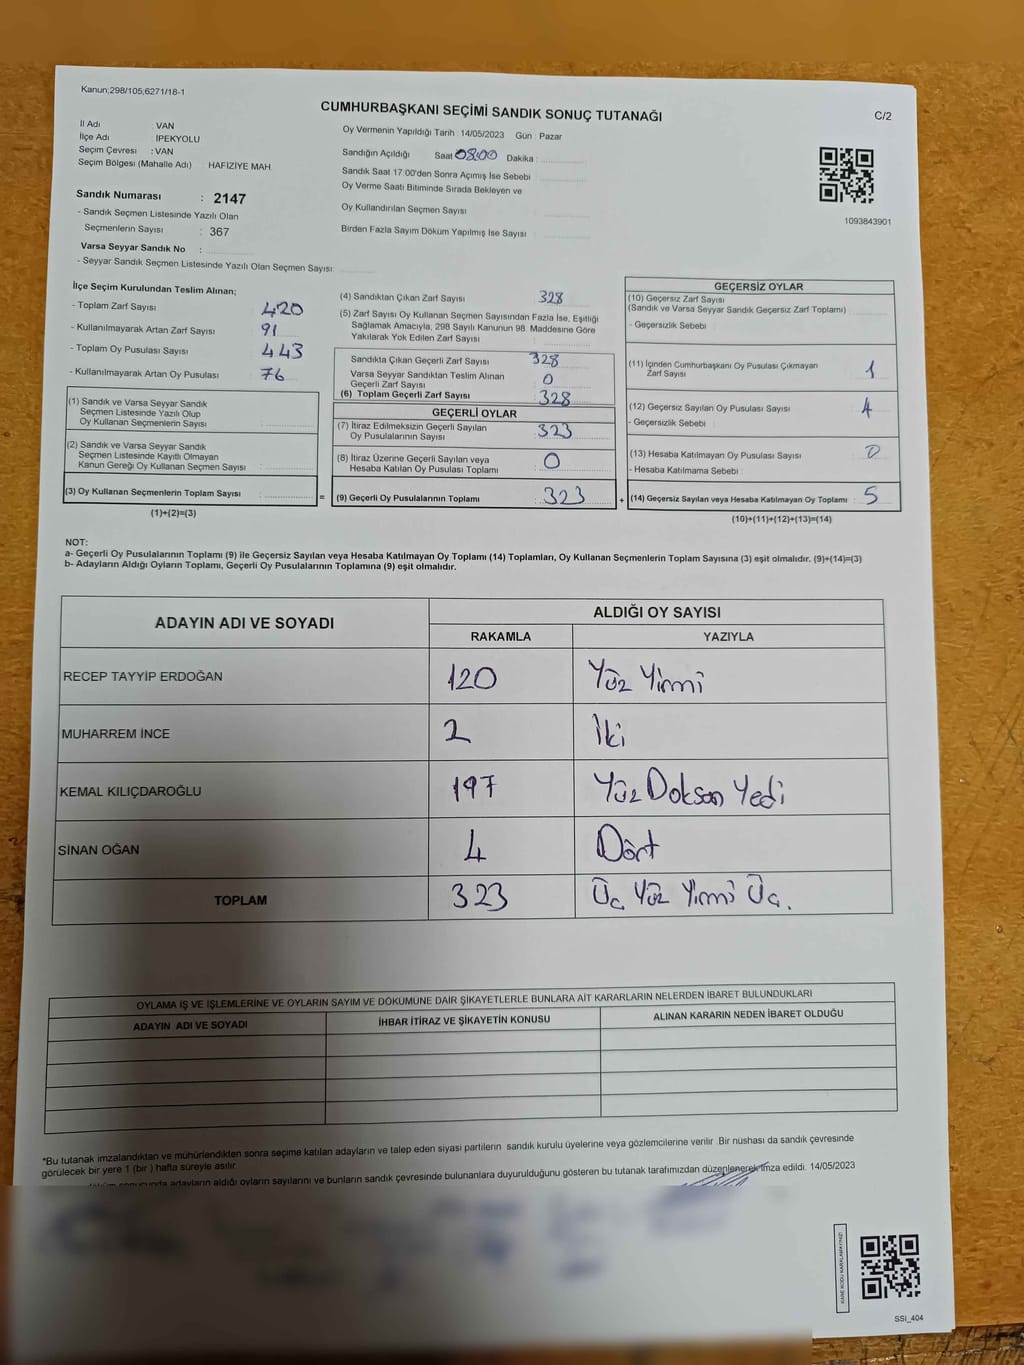 Kanun;298/105;6271/18-1
CUMHURBAŞKANI SEÇİMİ SANDIK SONUÇ TUTANAĞI
C/2
İl Adı : VAN
İlçe Adı : İPEKYOLU
Seçim Çevresi : VAN
Seçim Bölgesi (Mahalle Adı) : HAFIZİYE MAH.
Sandık Numarası : 2147
- Sandık Seçmen Listesinde Yazılı Olan
Seçmenlerin Sayısı : 367
Varsa Seyyar Sandık No :
- Seyyar Sandık Seçmen Listesinde Yazılı Olan Seçmen Sayısı:
Oy Vermenin Yapıldığı Tarih : 14/05/2023 Gün : Pazar
Sandığın Açıldığı Saat 08:00 Dakika :
Sandık Saat 17:00'den Sonra Açımış İse Sebebi
Oy Verme Saati Bitiminde Sırada Bekleyen ve
Oy Kullandırılan Seçmen Sayısı :
Birden Fazla Sayım Döküm Yapılmış İse Sayısı :
1093843901
İlçe Seçim Kurulundan Teslim Alınan;
- Toplam Zarf Sayısı : 420
- Kullanılmayarak Artan Zarf Sayısı : 91
- Toplam Oy Pusulası Sayısı : 443
- Kullanılmayarak Artan Oy Pusulası : 76
(1) Sandık ve Varsa Seyyar Sandık
Seçmen Listesinde Yazılı Olup
Oy Kullanan Seçmenlerin Sayısı :
(2) Sandık ve Varsa Seyyar Sandık
Seçmen Listesinde Kayıtlı Olmayan
Kanun Gereği Oy Kullanan Seçmen Sayısı :
(3) Oy Kullanan Seçmenlerin Toplam Sayısı : =
(1)+(2)=(3)
(4) Sandıktan Çıkan Zarf Sayısı : 328
(5) Zarf Sayısı Oy Kullanan Seçmen Sayısından Fazla İse, Eşitliği
Sağlamak Amacıyla, 298 Sayılı Kanunun 98. Maddesine Göre
Yakılarak Yok Edilen Zarf Sayısı :
Sandıkta Çıkan Geçerli Zarf Sayısı : 328
Varsa Seyyar Sandıktan Teslim Alınan
Geçerli Zarf Sayısı : 0
(6) Toplam Geçerli Zarf Sayısı : 328
GEÇERLİ OYLAR
(7) İtiraz Edilmeksizin Geçerli Sayılan
Oy Pusulalarının Sayısı : 323
(8) İtiraz Üzerine Geçerli Sayılan veya
Hesaba Katılan Oy Pusulası Toplamı : 0
(9) Geçerli Oy Pusulalarının Toplamı : 323 +
GEÇERSİZ OYLAR
(10) Geçersiz Zarf Sayısı
(Sandık ve Varsa Seyyar Sandık Geçersiz Zarf Toplamı) :
- Geçersizlik Sebebi :
(11) İçinden Cumhurbaşkanı Oy Pusulası Çıkmayan
Zarf Sayısı : 1
(12) Geçersiz Sayılan Oy Pusulası Sayısı : 4
- Geçersizlik Sebebi :
(13) Hesaba Katılmayan Oy Pusulası Sayısı : 0
- Hesaba Katılmama Sebebi :
(14) Geçersiz Sayılan veya Hesaba Katılmayan Oy Toplamı : 5
(10)+(11)+(12)+(13)=(14)
NOT:
a- Geçerli Oy Pusulalarının Toplamı (9) ile Geçersiz Sayılan veya Hesaba Katılmayan Oy Toplamı (14) Toplamları, Oy Kullanan Seçmenlerin Toplam Sayısına (3) eşit olmalıdır. (9)+(14)=(3)
b- Adayların Aldığı Oyların Toplamı, Geçerli Oy Pusulalarının Toplamına (9) eşit olmalıdır.
ADAYIN ADI VE SOYADI
ALDIĞI OY SAYISI
RAKAMLA YAZIYLA
RECEP TAYYİP ERDOĞAN 120 Yüz Yirmi
MUHARREM İNCE 2 İki
KEMAL KILIÇDAROĞLU 197 Yüz Doksan Yedi
SİNAN OĞAN 4 Dört
TOPLAM 323 Üç Yüz Yirmi Üç.
OYLAMA İŞ VE İŞLEMLERİNE VE OYLARIN SAYIM VE DÖKÜMÜNE DAİR ŞİKAYETLERLE BUNLARA AİT KARARLARIN NELERDEN İBARET BULUNDUKLARI
ADAYIN ADI VE SOYADI İHBAR İTİRAZ VE ŞİKAYETİN KONUSU ALINAN KARARIN NEDEN İBARET OLDUĞU
*Bu tutanak imzalandıktan ve mühürlendikten sonra seçime katılan adayların ve talep eden siyasi partilerin sandık kurulu üyelerine veya gözlemcilerine verilir .Bir nüshası da sandık çevresinde
görülecek bir yere 1 (bir ) hafta süreyle asılır.
sonucunda adayların aldığı oyların sayılarını ve bunların sandık çevresinde bulunanlara duyurulduğunu gösteren bu tutanak tarafımızdan düzenlenerek imza edildi. 14/05/2023
KARE KODU KARALAMAYINIZ!
SSI_404